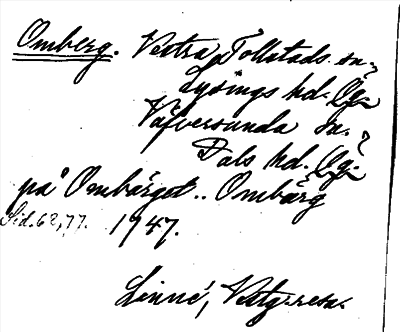 Omberg. Vestra Tollstads sn.?
Lysings hd. Ög.
Väfversunda sn.?
Dals hd. Ög.
på Ombärget.. Ombärg
Sid. 62, 77. 1747.
Linné, Vestg. resa.